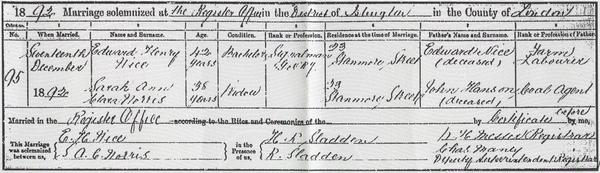 1892. Marriage solemnized at The Register Office in the District of Islington in the County of London
Columns:— 1 2 3 4 5 6 7 8
No. When Married. Name and Surname. Age. Condition. Rank or Profession. Residence at the time of Marriage. Father's Name and Surname. Rank or Profession of Father.
95 Seventeenth December 1892 Edward Henry Vice 42 years Bachelor Signalman 33 Stanmore Street Edward Vice (deceased) Farm Labourer
Sarah Ann Clara Norris 38 years Widow 33 Stanmore Street John Hanson (deceased) Coal Agent
Married in the Register Office according to the Rites and Ceremonies of the by Certificate before by me,
This Marriage was solemnized between us, E. H. Vice in the Presence of us, H. K. Sladden Registrar
S. A. C. Norris K. Sladden Chas. Deputy Superintendent Registrar